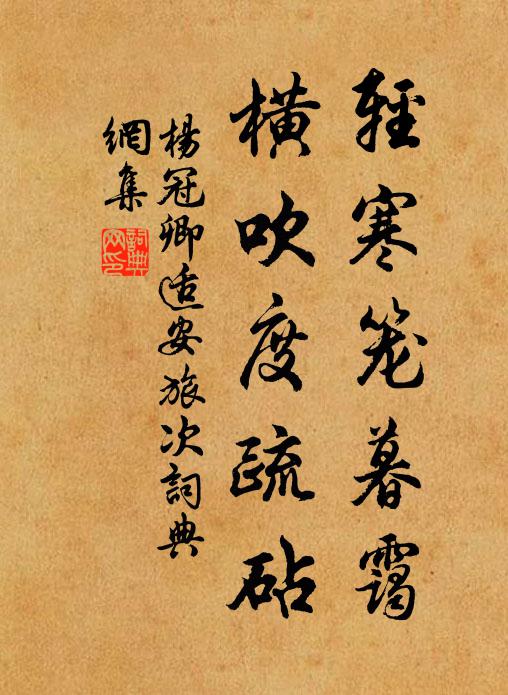 輕寒笼暮靄
横吹度疏砧
楊冠卿适安旅次詞典
網集
詞典
网印